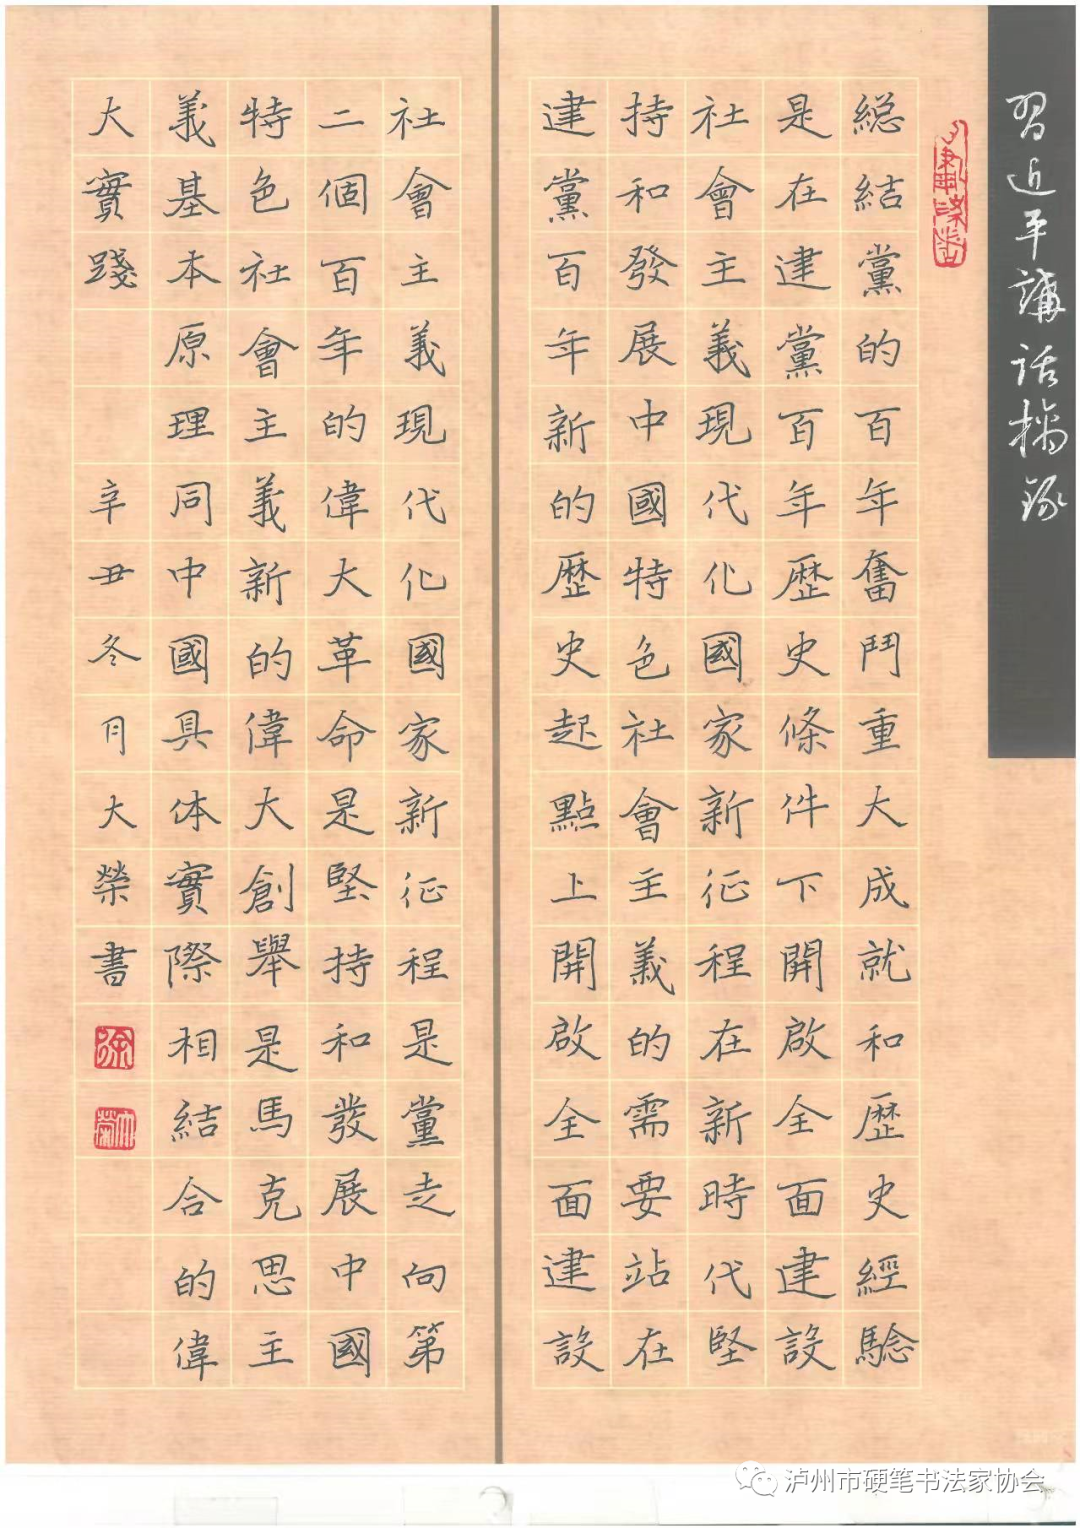 習近平講话摘錄
総結黨的百年奮鬥重大成就和歷史經驗
是在建黨百年歷史條件下開啟全面建設
社會主義現代化國家新征程在新時代堅
持和發展中國特色社會主義的需要站在
建黨百年新的歷史起點上開啟全面建設
社會主義現代化國家新征程是黨走向第
二個百年的偉大革命是堅持和發展中國
特色社會主義新的偉大創舉是馬克思主
義基本原理同中國具体實際相結合的偉
大實踐 辛丑冬月大榮書
徐
大榮
泸州市硬笔书法家协会